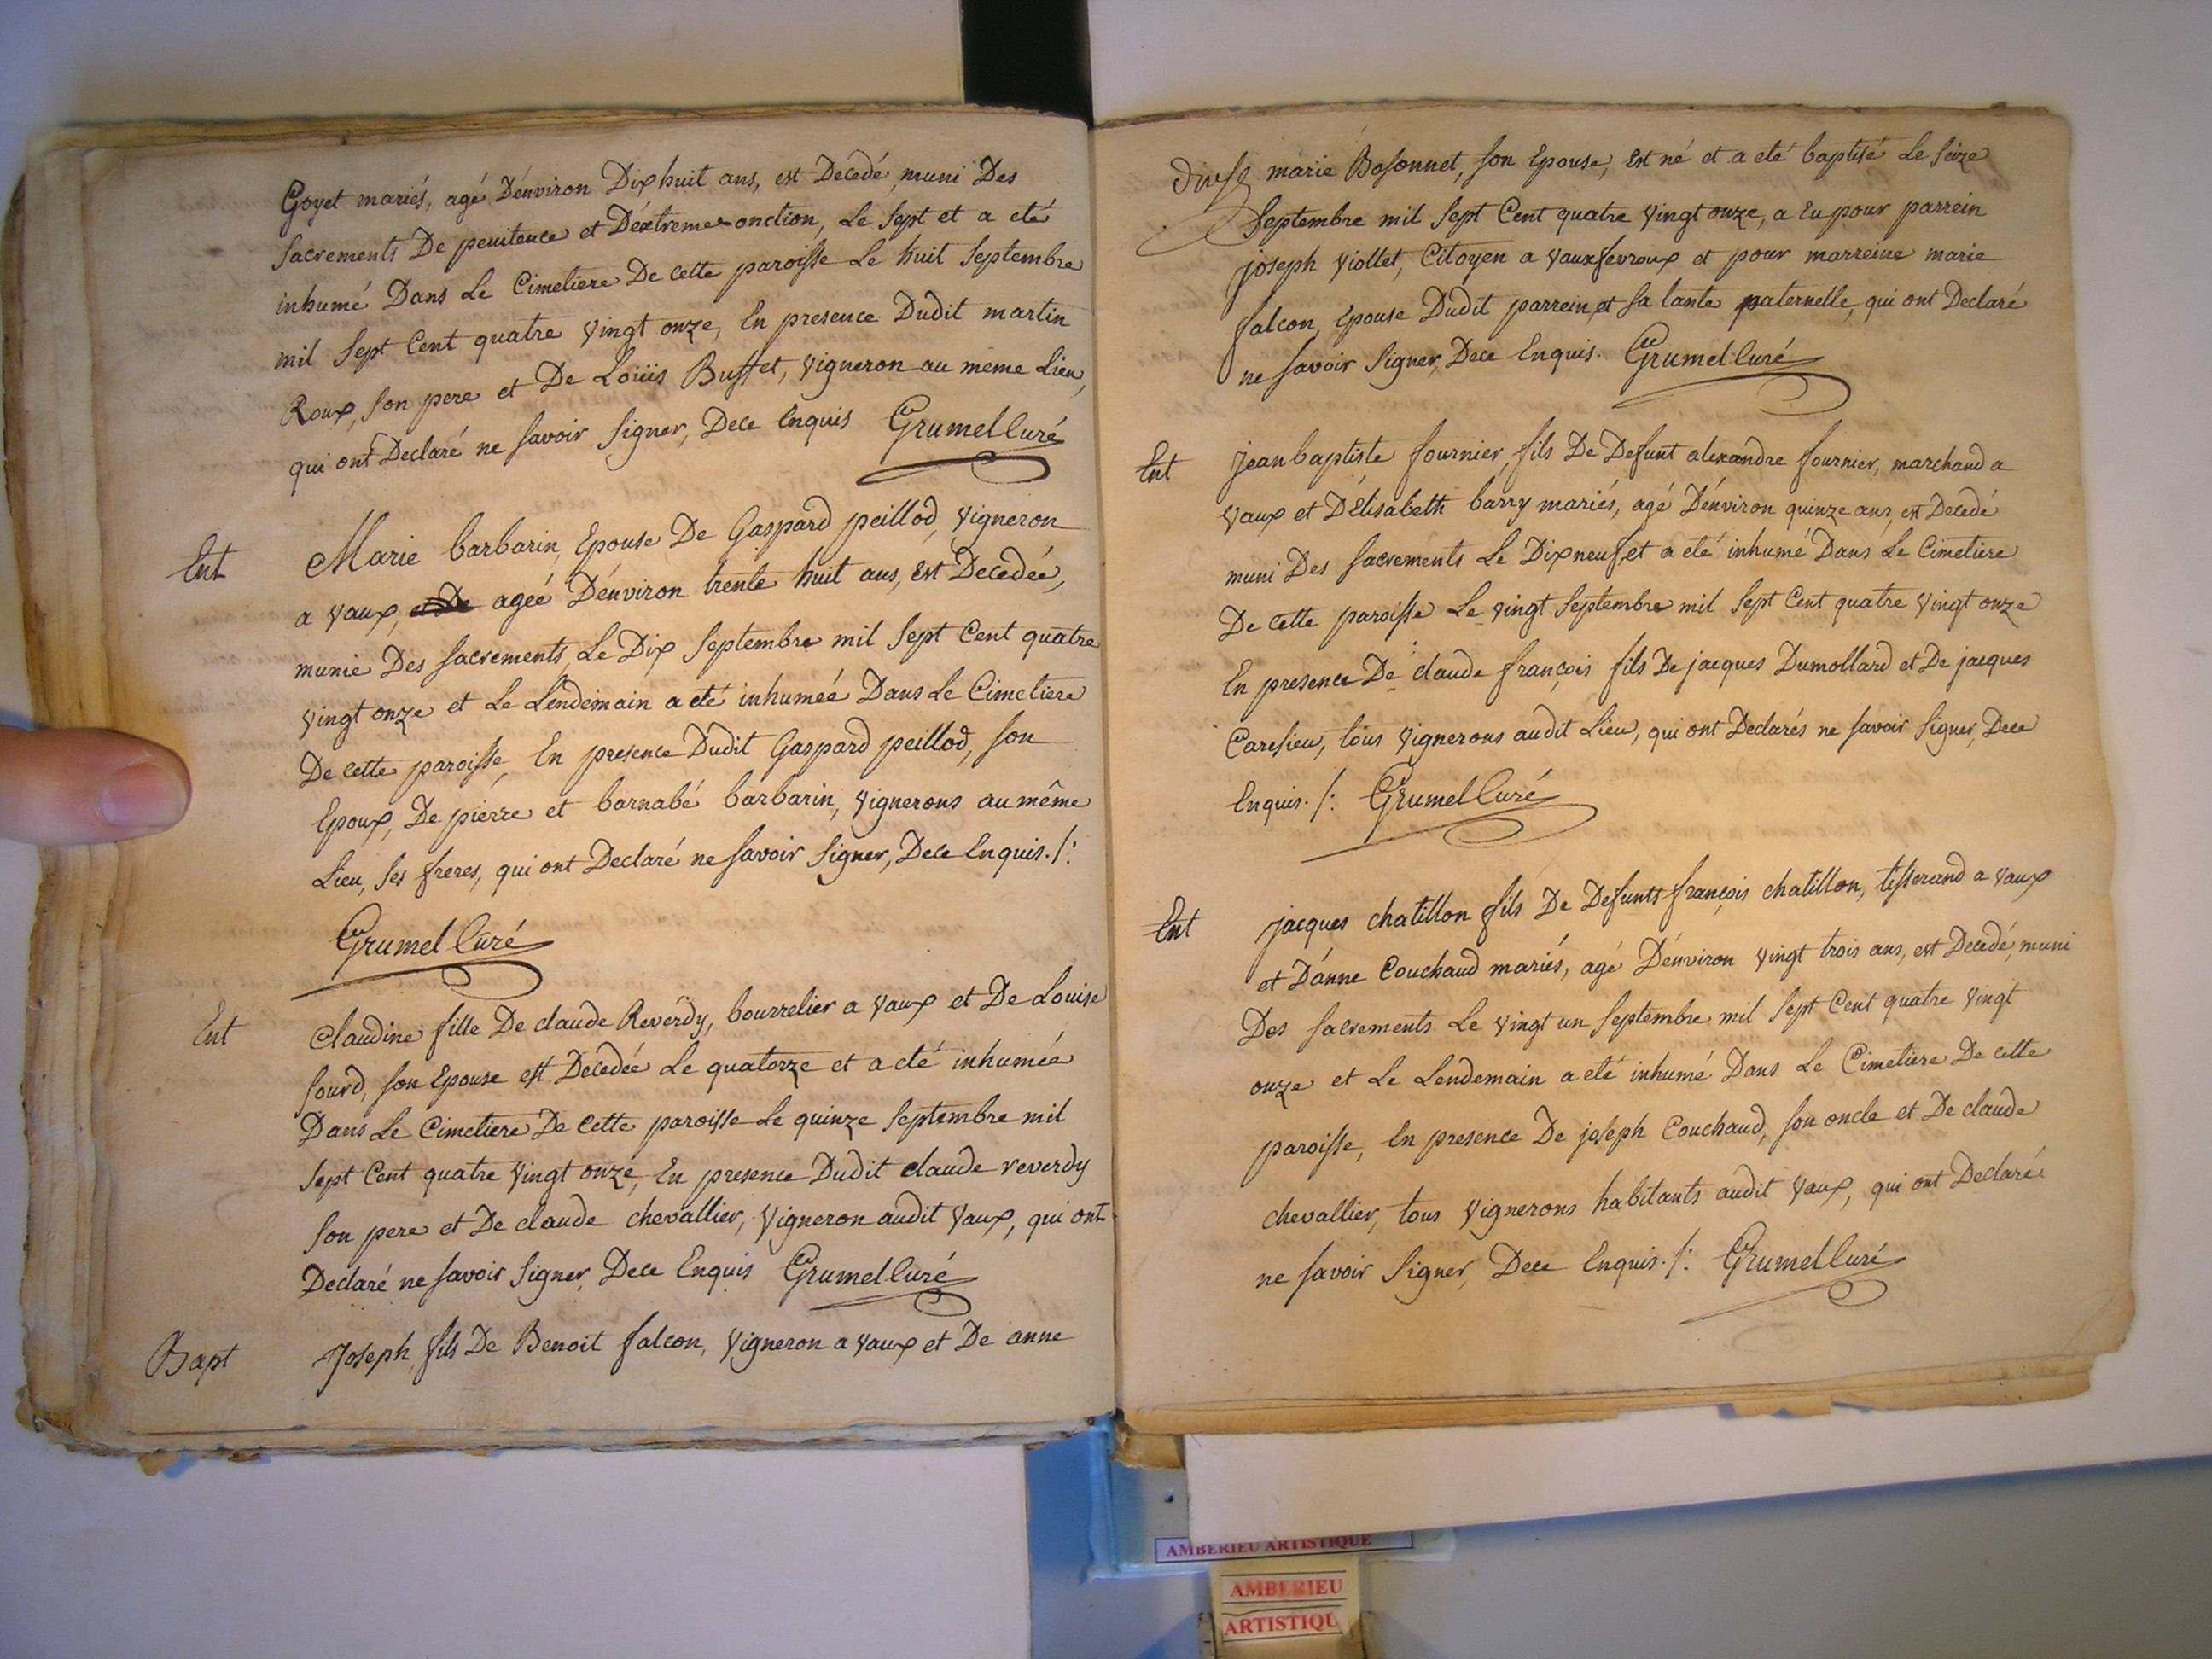 Goyet mariés, agé D'environ Dix huit ans, est Decedé, muni Des
sacrements De penitence et D'extreme onction, Le sept et a eté
inhumé Dans Le Cimetiere De cette paroisse Le huit Septembre
mil sept Cent quatre vingt onze, En presence Dudit martin
Roux, son pere et De Loüis Buffet, vigneron au meme Lieu,
qui ont Declaré ne savoir signer, Dece Enquis Grumel Curé
Ent Marie barbarin, Epouse De Gaspard peillod, vigneron
a vaux, et De agée D'environ trente huit ans, est Decedée,
munie Des sacrements, Le Dix Septembre mil sept Cent quatre
vingt onze et Le Lendemain a eté inhumée Dans Le Cimetiere
De cette paroisse, En presence Dudit Gaspard peillod, son
Epoux, De pierre et barnabé barbarin, vignerons au même
Lieu, ses freres, qui ont Declaré ne savoir signer, Dece Enquis./:
Grumel Curé
Ent Claudine fille De claude Reverdy, bourrelier a vaux et De Louise
sourd, son Epouse est Decedée Le quatorze et a eté inhumée
Dans Le Cimetiere De cette paroisse Le quinze septembre mil
sept Cent quatre vingt onze, En presence Dudit claude reverdy
son pere et De claude chevallier, vigneron audit vaux, qui ont
Declaré ne savoir signer, Dece Enquis Grumel Curé
Bapt Joseph, fils De Benoit falcon, vigneron a vaux et De anne
marie Bosonnet, son Epouse, Est né et a eté baptisé Le seize
Septembre mil sept Cent quatre vingt onze, a Eu pour parrein
joseph viollet, Citoyen a vauxfevroux et pour marreine marie
falcon, Epouse Dudit parrein, et sa tante paternelle, qui ont Declaré
ne savoir signer, Dece Enquis. Grumel Curé
Ent jean baptiste fournier, fils De Defunt alexandre fournier, marchand a
vaux et D'Elisabeth barry mariés, agé D'environ quinze ans, est Decedé
muni Des sacrements Le Dix neuf, et a eté inhumé Dans Le Cimetiere
De cette paroisse Le vingt Septembre mil sept Cent quatre vingt onze
En presence De claude françois fils De jacques Dumollard et De jacques
Caresieu, tous vignerons audit Lieu, qui ont Declarés ne savoir signer, Dece
Enquis./: Grumel Curé
Ent jacques chatillon fils De Defunts françois chatillon, tisserand a vaux
et D'anne Couchaud mariés, agé D'environ vingt trois ans, est Decedé, muni
Des sacrements Le vingt un septembre mil sept Cent quatre vingt
onze et Le Lendemain a eté inhumé Dans Le Cimetiere De cette
paroisse, En presence De joseph Couchaud, son oncle et De claude
chevallier, tous vignerons habitants audit vaux, qui ont Declaré
ne savoir signer, Dece Enquis./: Grumel Curé
AMBERIEU ARTISTIQUE
AMBERIEU
ARTISTIQU